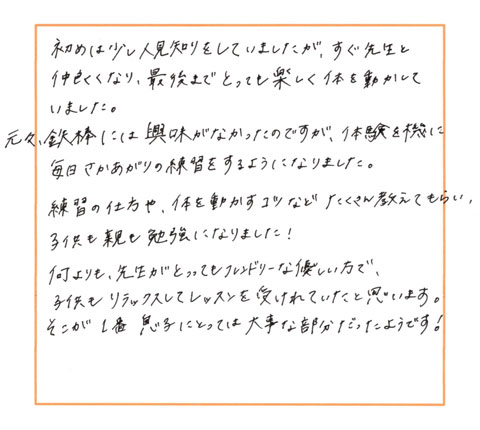 初めは少し人見知りをしていましたが、すぐ先生と
仲良くなり、最後までとっても楽しく体を動かして
いました。
元々、鉄棒には興味がなかったのですが、体験を機に
毎日さかあがりの練習をするようになりました。
練習の仕方や、体を動かすコツなどたくさん教えてもらい、
子供も親も勉強になりました!
何よりも、先生がとってもフレンドリーな優しい方で、
子供もリラックスしてレッスンを受けれていたと思います。
そこが1番息子にとっては大事な部分だったようです!